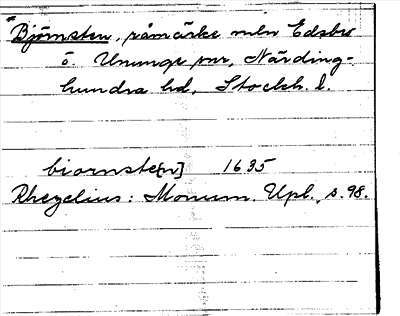 Björnsten, råmärke mln Edsbro
o. Ununge snr, Närding-
hundra hd, Stockh. l.
biornste[n] 1635
Rhezelius: Monum. Upl., s. 98.